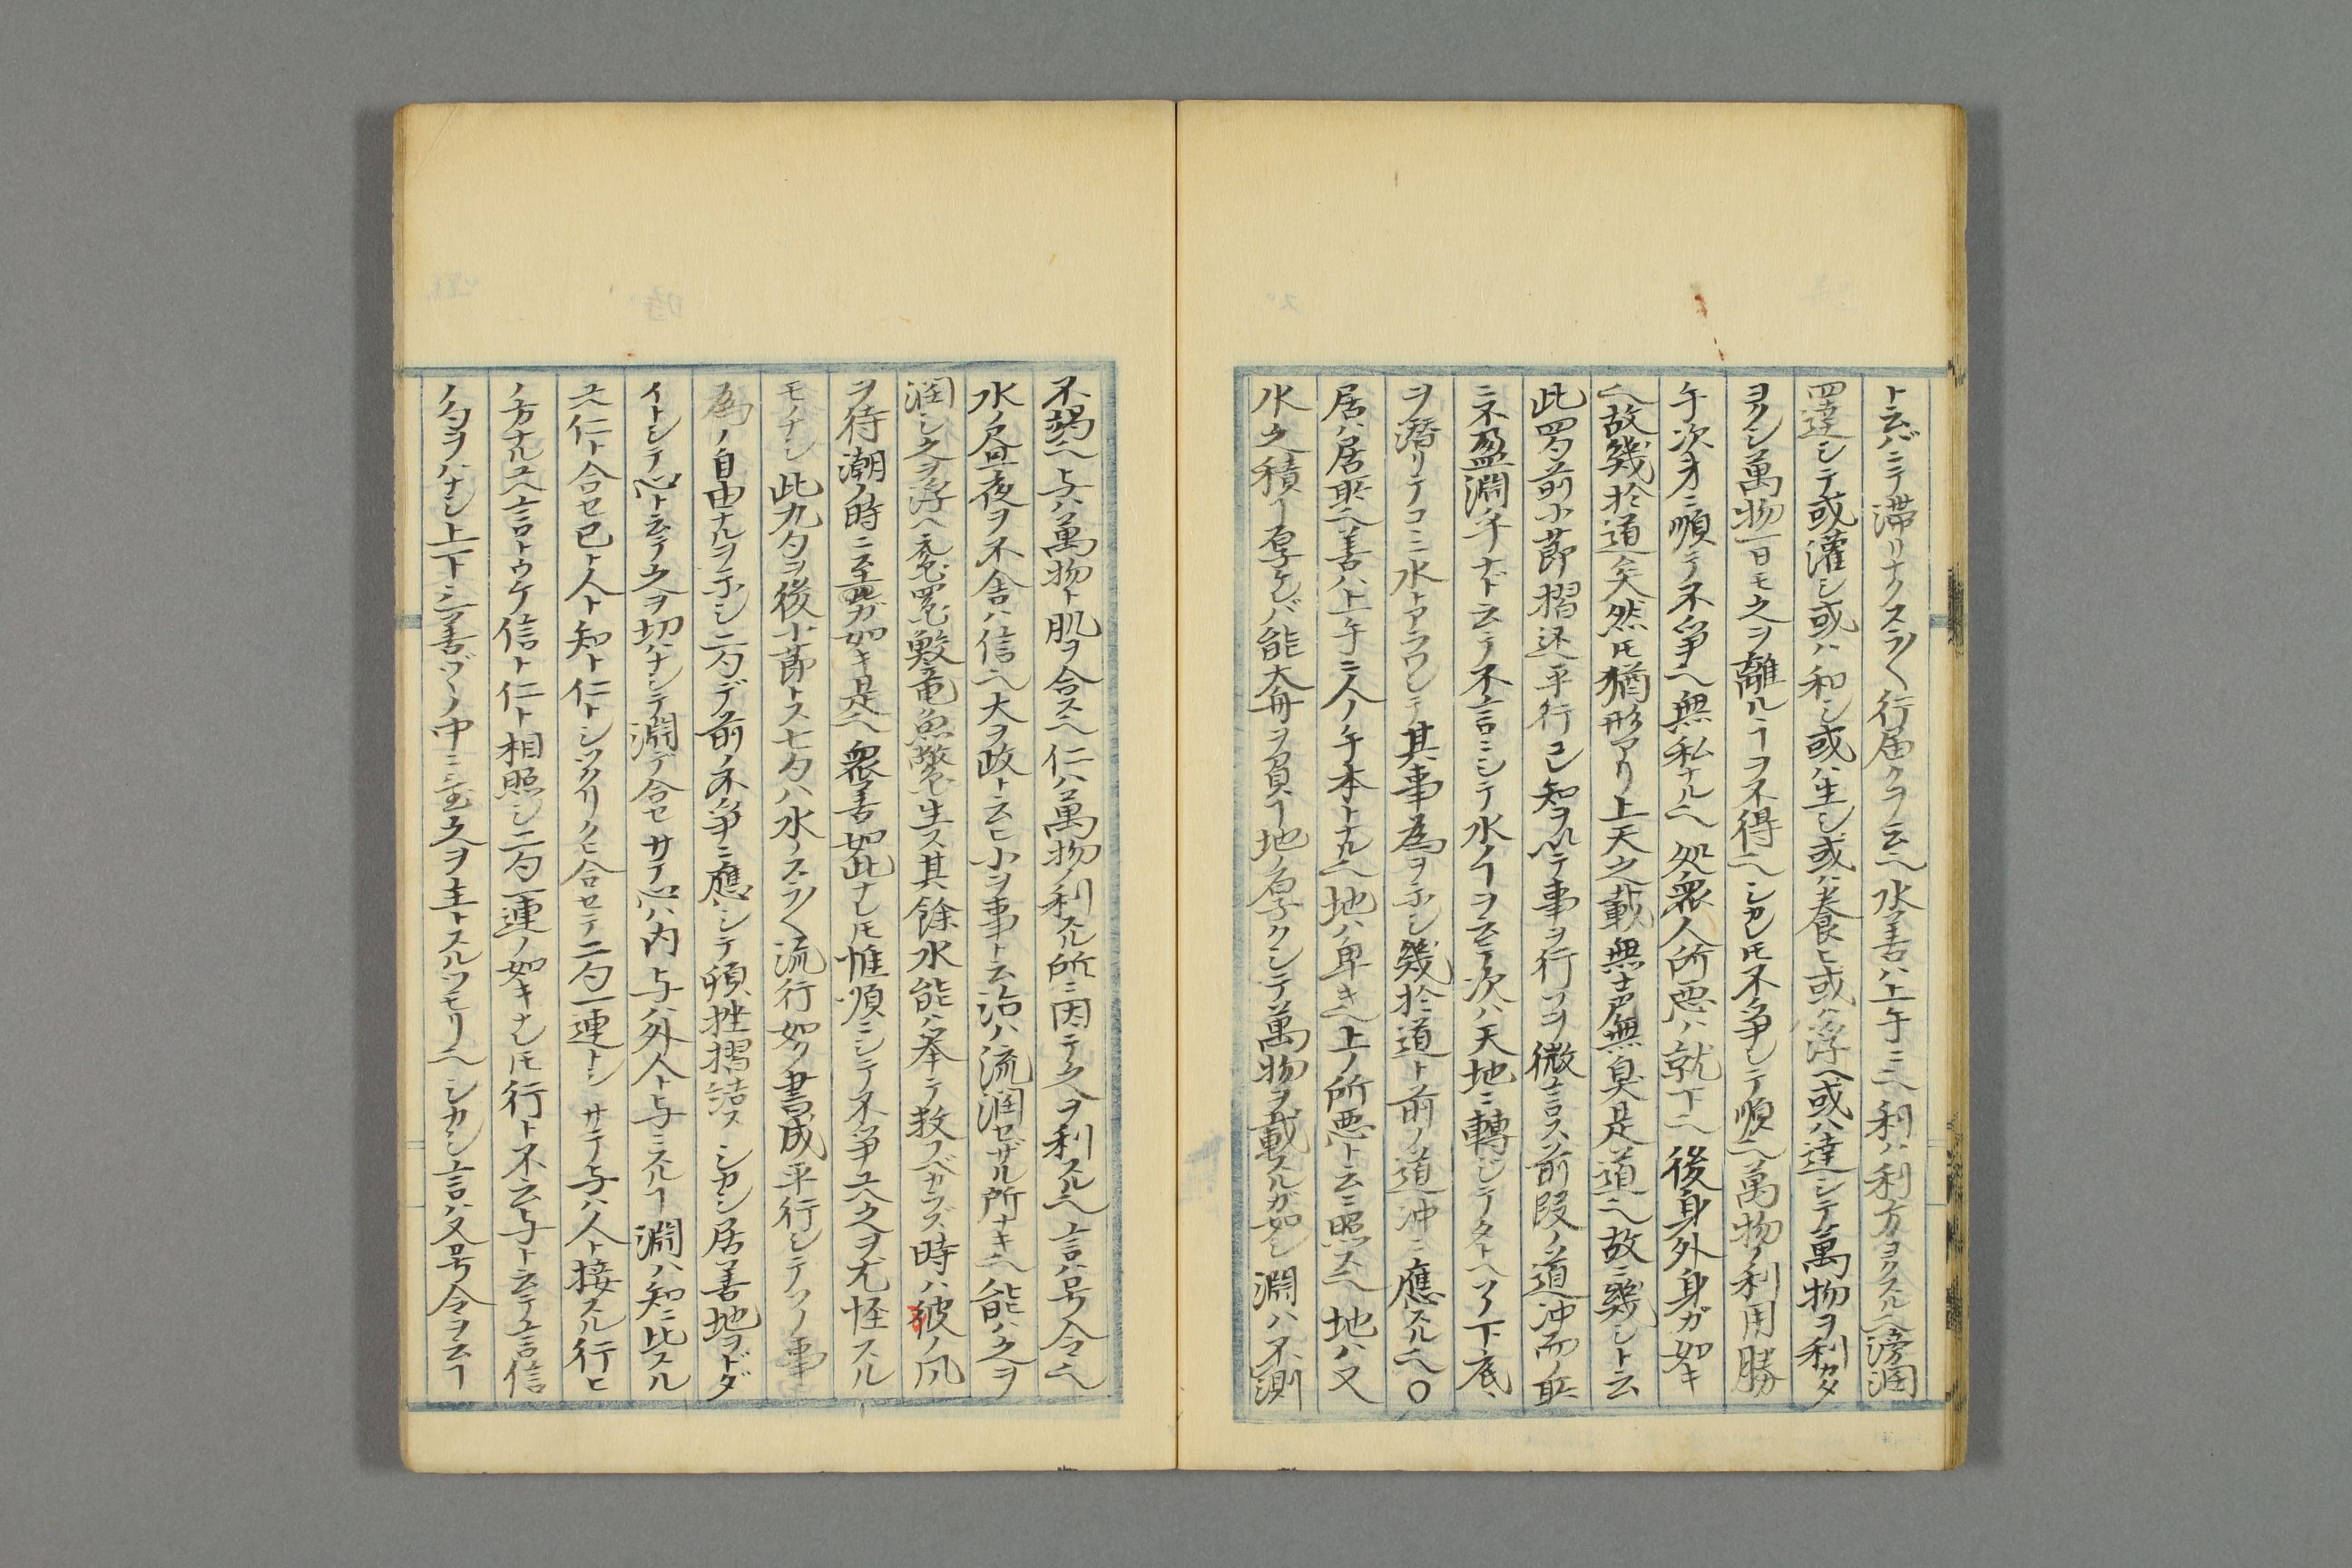 ト云バニテ滞リナクスラ〱行届クヲ云ヘ水善ハ上午ニヘ利ハ利方ヨクスルヘ滂潤
四達シテ或灌シ或ハ和シ或ハ生シ或ハ養ヒ或ハ浮ヘ或ハ達シテ萬物ヲ利カタ
ヨクシ萬物一日モ之ヲ離ルヿヲ不得ヘシカレ𪜈不爭シテ順ヘ萬物ノ利用勝
午次才ニ順テ不爭ヘ無私ナルヘ処衆人所悪ハ就下ヘ後身外身ガ如キ
ヘ故幾於道矣然𪜈猶形アリ上天之載無声無臭是道ヘ故ニ幾シト云
此四勺前小節摺述平行コレ知ヲ以テ事ヲ行フヲ微言ス前段ノ道冲而ノ所
ニ不盈淵乎ナド云テ不言ニシテ水ノヿヲ云テ次ハ天地ニ轉ジテタトヘソノ下底ヽ
ヲ潜リテコニ水トアラワシテ其事為ヲ示シ幾於道ト前ノ道冲ニ應スルヘ〇
居ハ居所ヘ善ハ上午ニ人ノ午本ト九ヘ地ハ卑キヘ上ノ所悪ト云ニ照スヘ地ハ又
水之積ヿ厚ケレバ能大舟ヲ負ヿ地ノ厚クシテ萬物ヲ載スルガ如シ淵ハ不測
不竭ヘ与ハ萬物ト肌ヲ合スヘ仁ハ萬物ノ利スル所ニ因テ之ヲ利スルヘ言ハ号令ヘ
水ノ昼夜ヲ不舎ハ信ヘ大ヲ政ト云ヒ小ヲ事ト云治ハ流潤セザル所ナキヘ能ハ之ヲ
潤シ之ヲ浮ヘ黿鼉鮫竜魚鼈生ス其餘水能ハ挙テ数フベカラズ時ハ彼ノ風
ヲ待潮ノ時ニ至ガ如キ是ヘ衆善如此ナレ𪜈惟順ニシテ不爭ユヘ之ヲ尤怪スル
モノナシ此九勺ヲ後小節トス七勺ハ水ノスラ〱流行如ク書成平行シテソノ事
為ノ自由ナルヲ示シ二勺デ前ノ不爭ニ應シテ頓挫摺結スシカシ居善地ヲドダ
イトシテ心ト云テ之ヲ切ハナシテ淵デ合セサテ心ハ内与ハ外人ト与ニスルヿ淵ハ知ニ比スル
ユヘ仁ト合セ已ト人ト知ト仁トシツクリクヒ合セテ二勺一連トシサテ与ハ人ト接スル行ヒ
ノ方ナルユヘ言トウケ信ト仁ト相照シ二勺一連ノ如キナレ𪜈行ト不云与ト云テ言信
ノ勺ヲハナシ上下ニ善ヅノ中ニ至之ヲ主トスルツモリヘシカシ言ハ又号令ヲ云ヿ